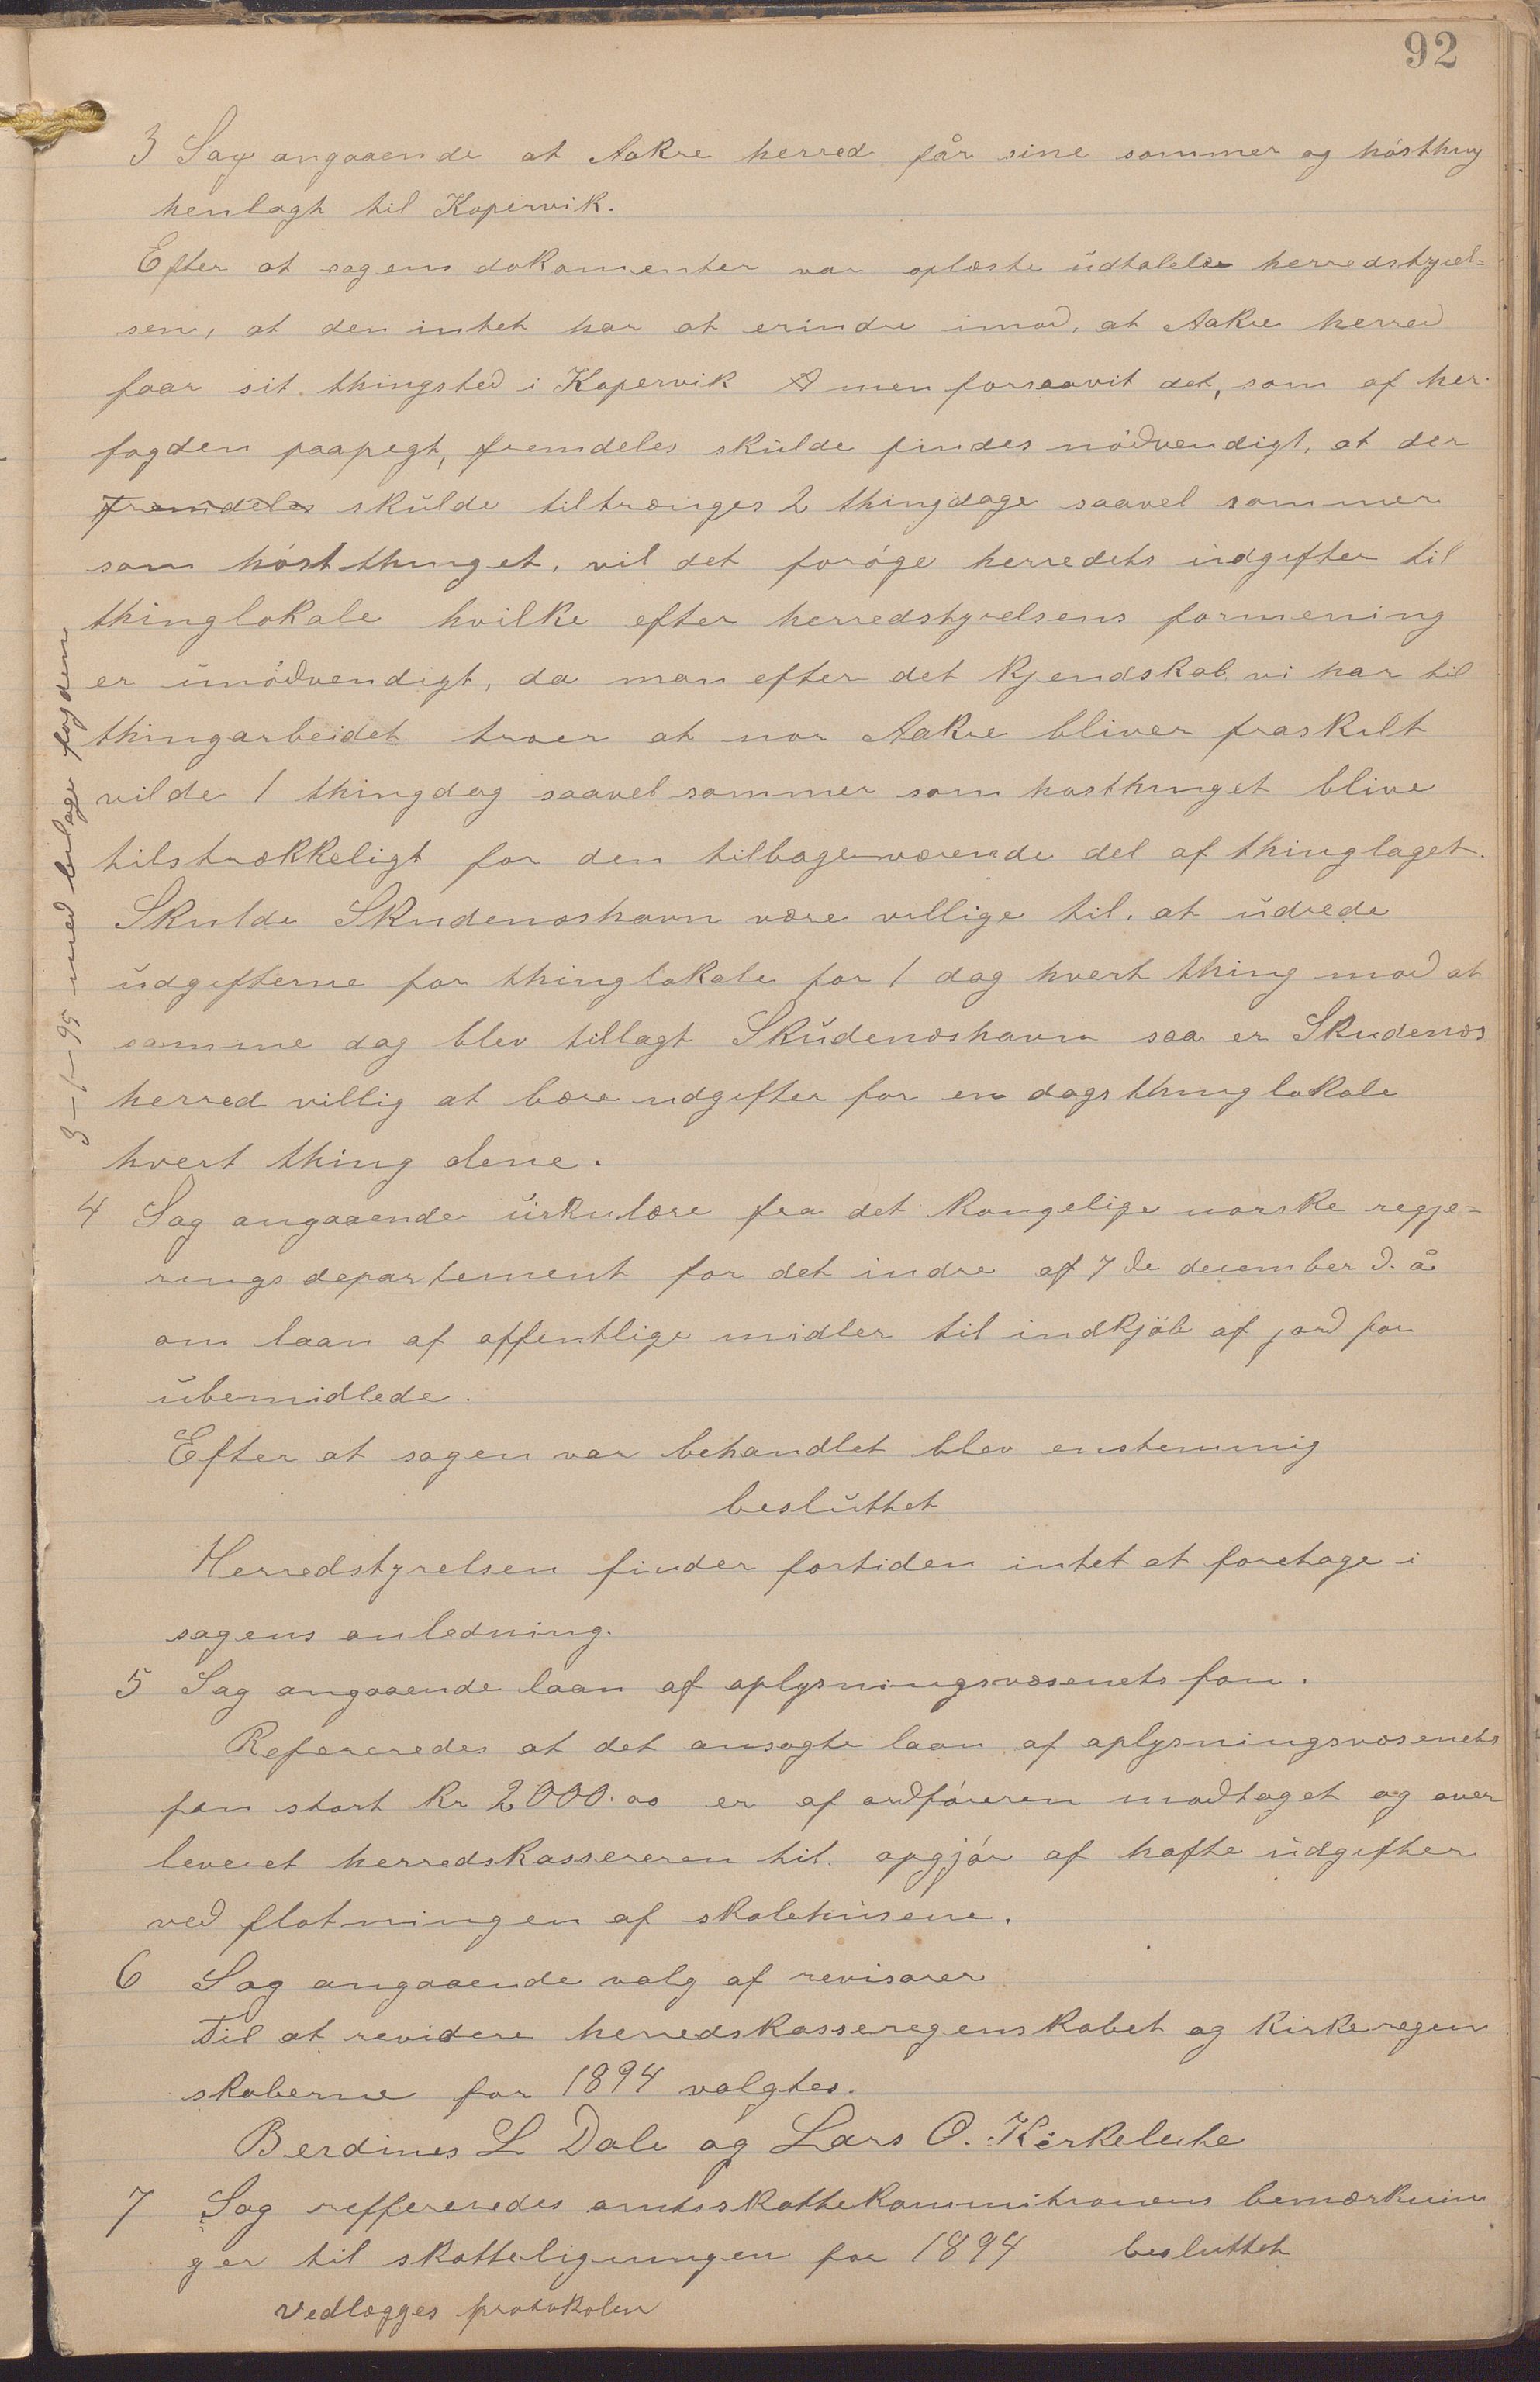 92
3 Sag angaaende at Aakre herred får sine sommer og hösthing
henlagt til Kopervik.
Efter at sagens dokomenter var oplæste üdtaler herredstyrel=
sen, at den intet har at erindre imod, at Aakre herred
faar sit thingsted i Kopervik men forsaavit det, som af her.
fogden paapegt, fremdeles skülde findes nödvendigt, at der
fremdeles skülde tiltrænges 2 thingdage saavel sommer
som höstthinget, vil det foröge herredets üdgifter til
thinglokale hvilke efter herredstyrelsens formening
er ünödvendigt, da man efter det kjendskab vi har til
thingarbeidet troer at nor Aakre bliver fraskilt
vilde 1 thingdag saavel sommer som hosthinget blive
tilstrækkeligt for den tilbageværende del af thinglaget.
Skulde Skudenæshavn være villige til, at üdrede
üdgifterne for thinglokale for 1 dag hvert thing mod at
samme dag blev tillagt Sküdenæshavn saa er Skudenæs
herred villig at bære udgifter for en dags thinglokale
hvert thing dene.
3-1-95 med bilage fogden
4 Sag angaaende sirkulære fra det kongelige norske regje=
rings departement for det indre af 7de december d. å
om laan af offentlige midler til indkjöb af jord for
übemidlede.
Efter at sagen var behandlet blev enstemmig
beslüttet
Herredstyrelsen finder fortiden intet at foretage i
sagens anledning.
5 Sag angaaende laan af oplysningsvæsenets fon.
Refereredes at det ansogte laan af oplysningsvæsenets
fon stort kr 2000.00 er af ordföreren modtaget og over
leveret herredskassereren til opgjör af hafte üdgifter
ved flotningen af skolehüsene.
6 Sag angaaende valg af revisorer
Til at revidere herredskasseregenskabet og kirkeregen
skaberne for 1894 valgtes.
Berdines L Dale og Lars O. Kirkeleite
7 Sag reffereredes amtsskattekommitionens bemærknin
ger til skatteligningen for 1894 besluttet
vedlægges protokolen